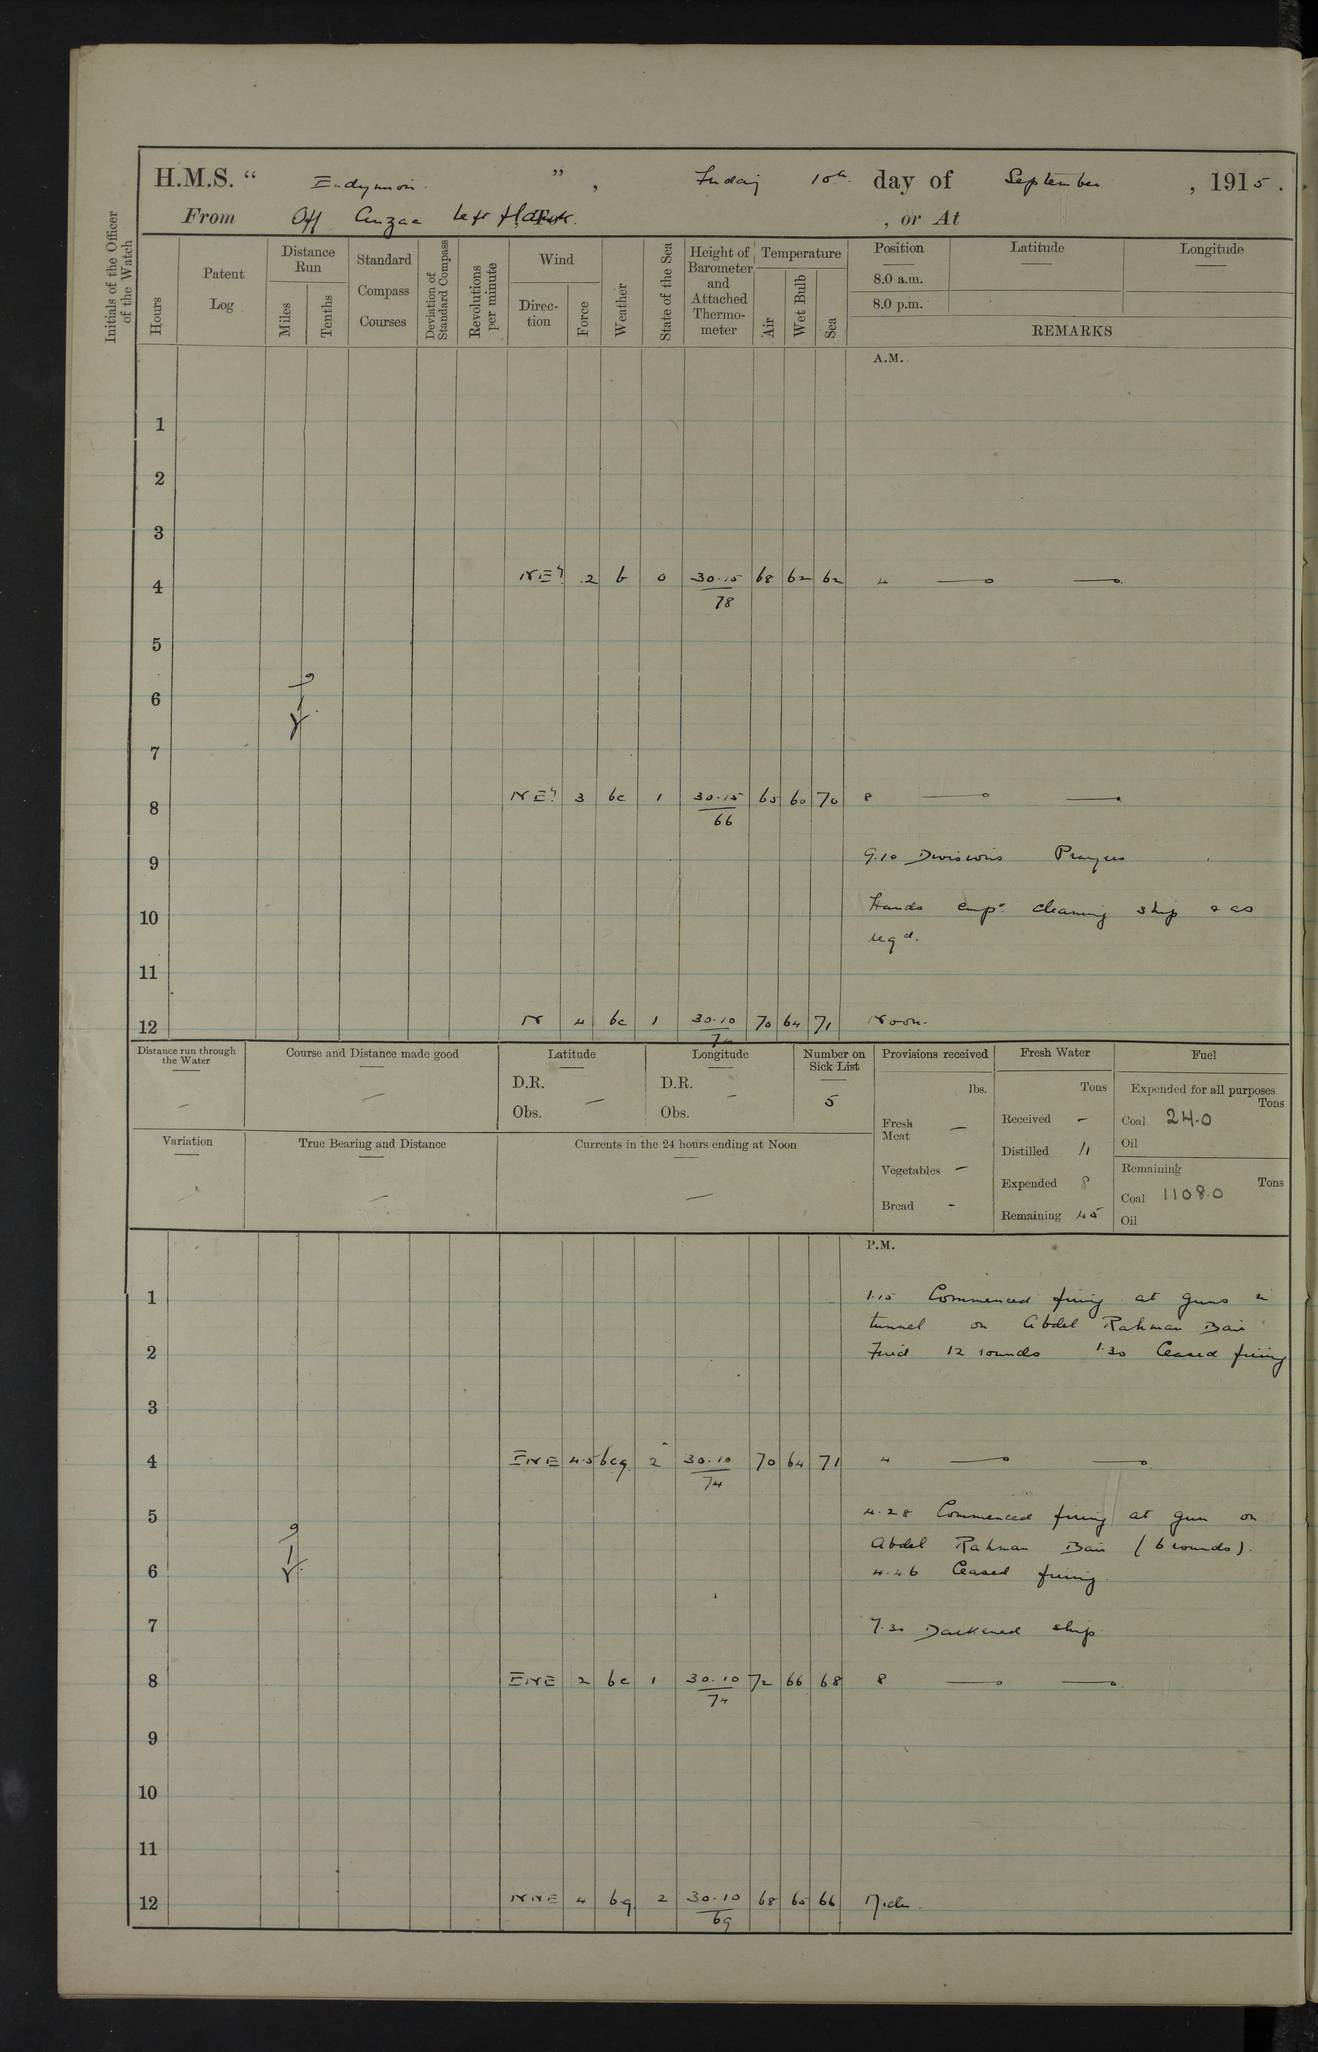 H.M.S. " Endymion ", Friday 10th day of September, 1915.
From Off Anzac Left flank. To , or At
Initials of the Officer of the Watch
Hours
Patent Log
Distance Run
Miles
Tenths
Standard Compass Courses
Deviation of Standard Compass
Revolutions per minute
Wind
Direction
Force
Weather
State of the Sea
Height of Barometer and Attached Thermometer
Temperature
Air
Wet Bulb
Sea
Position Latitude Longitude
8.0 a.m.
8.0 p.m.
REMARKS
A.M.
1
2
3
4 NE'ly 2 b 0 30.15/78 68 62 62 4
5
6
7
8 NE'ly 3 bc 1 30.15/66 65 60 70 8
9 9.10 Divisions Prayers
10 Hands emp. cleaning ship & as
reqd.
11
12 N 4 bc 1 30.10 70 64 71 Noon.
Distance run through the Water
Course and Distance made good
Latitude
D.R.
Obs. —
Longitude
D.R. —
Obs.
Number on Sick List
5
Variation
True Bearing and Distance
Currents in the 24 hours ending at Noon
Provisions received
lbs.
Fresh Meat —
Vegetables —
Bread -
Fresh Water
Tons
Received -
Distilled 11
Expended 8
Remaining 45
Fuel
Expended for all purposes
Tons
Coal 24.0
Oil
Remaining
Tons
Coal 1108.0
Oil
P.M.
1 1.15 Commenced firing at guns in
tunnel on Abdel Rahman Bair
2 Fired 12 rounds 1.30 Ceased firing
3
4 ENE 4.5 bcq 2 30.10/74 70 64 71 4
5 4.28 Commenced firing at gun on
Abdel Rahman Bair (6 rounds).
6 4.46 Ceased firing
7 7.30 Darkened ship
8 ENE 2 bc 1 30.10/74 72 66 68 8
9
10
11
12 NNE 4 bq 2 30.10/69 68 65 66 Midn